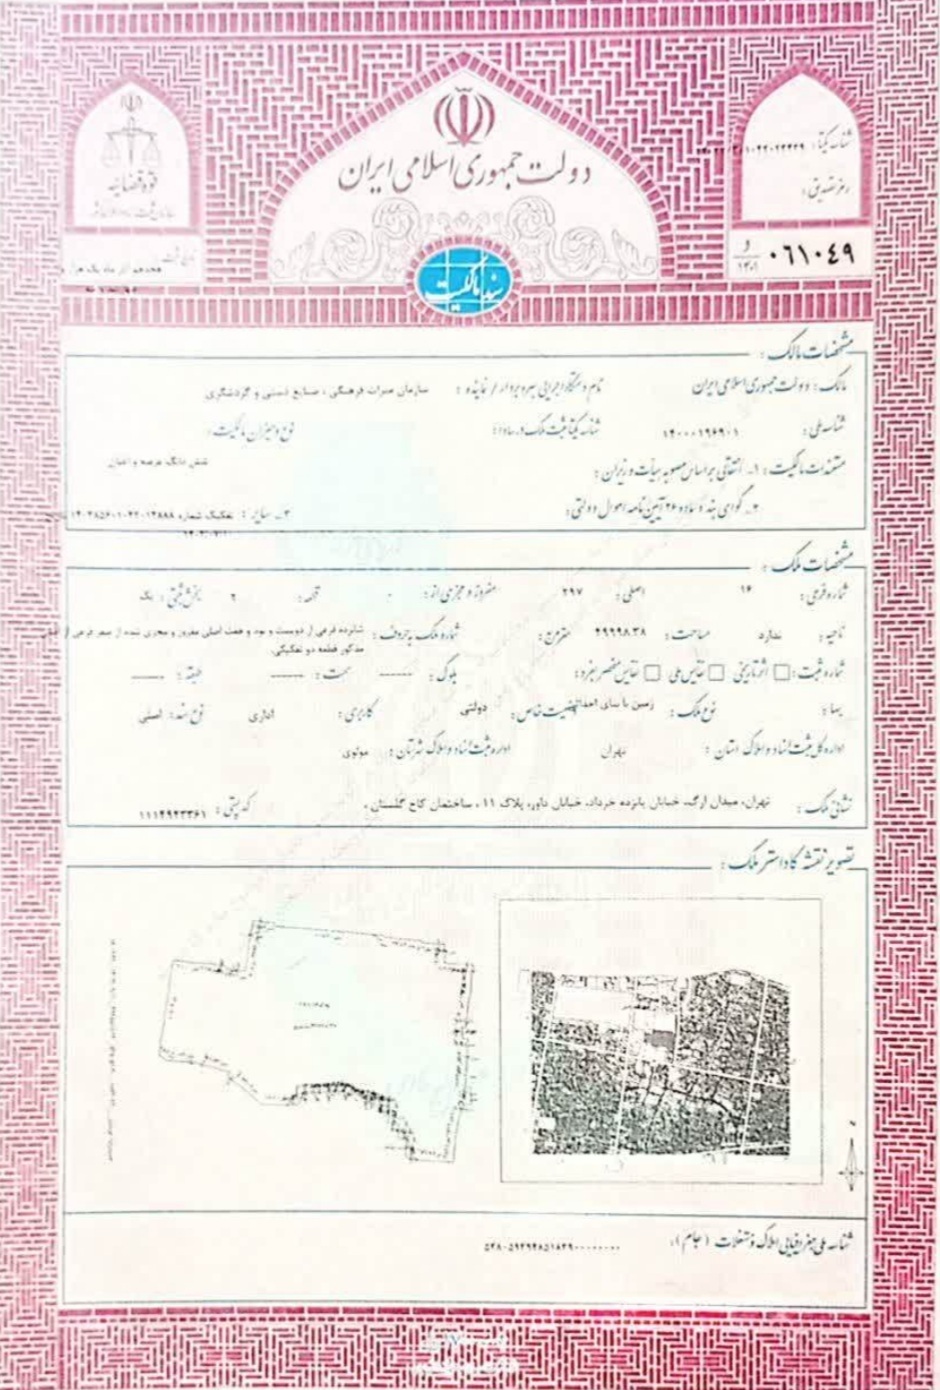 دولت جمهوری اسلامی ایران
قوه قضائیه
شناسه یکتا:
رمز تصدیق:
۰۶۱۰۴۹ و ۱۴۰۱
سند مالکیت
مشخصات مالک:
مالک: دولت جمهوری اسلامی ایران نام دستگاه اجرایی بهره بردار / نماینده: سازمان میراث فرهنگی، صنایع دستی و گردشگری
شناسه ملی: ۱۴۰۰۰۱۹۶۹۰۱ شناسه یکتا ثبت ملک در سادا: نوع و میزان مالکیت:
شش دانگ عرصه و اعیان
مستندات مالکیت: ۱ـ انتقالی بر اساس مصوبه هیأت وزیران:
۲ـ گواهی بند ماده ۲۶ آیین نامه اموال دولتی: ۳ـ سایر: تفکیک شماره
مشخصات ملک:
شماره فرعی: ۱۶ اصلی: ۲۹۷ مفروز و مجزی از: ۰ قطعه: ۲ بخش ثبتی: یک
ناحیه: ندارد مساحت: ۲۹۹۹۸.۳۸ مترمربع: شماره ملک به حروف: شانزده فرعی از دویست و نود و هفت اصلی مفروز و مجزی شده از صفر فرعی از اصلی
مذکور قطعه دو تفکیکی.
شماره ثبت: اثر تاریخی نفایس ملی نفایس منحصر بفرد: بلوک: ------ سمت: ------ طبقه: ------
بهاء: نوع ملک: زمین با بنای احداثی وضعیت خاص: دولتی کاربری: اداری نوع سند: اصلی
اداره کل ثبت اسناد و املاک استان: تهران اداره ثبت اسناد و املاک شهرستان: مولوی
نشانی ملک: تهران، میدان ارگ، خیابان پانزده خرداد، خیابان داور، پلاک ۱۱، ساختمان کاخ گلستان. کدپستی: ۱۱۱۴۹۴۳۳۶۱
تصویر نقشه کاداستر ملک:
شناسه ملی جغرافیایی املاک و مستغلات (جام):